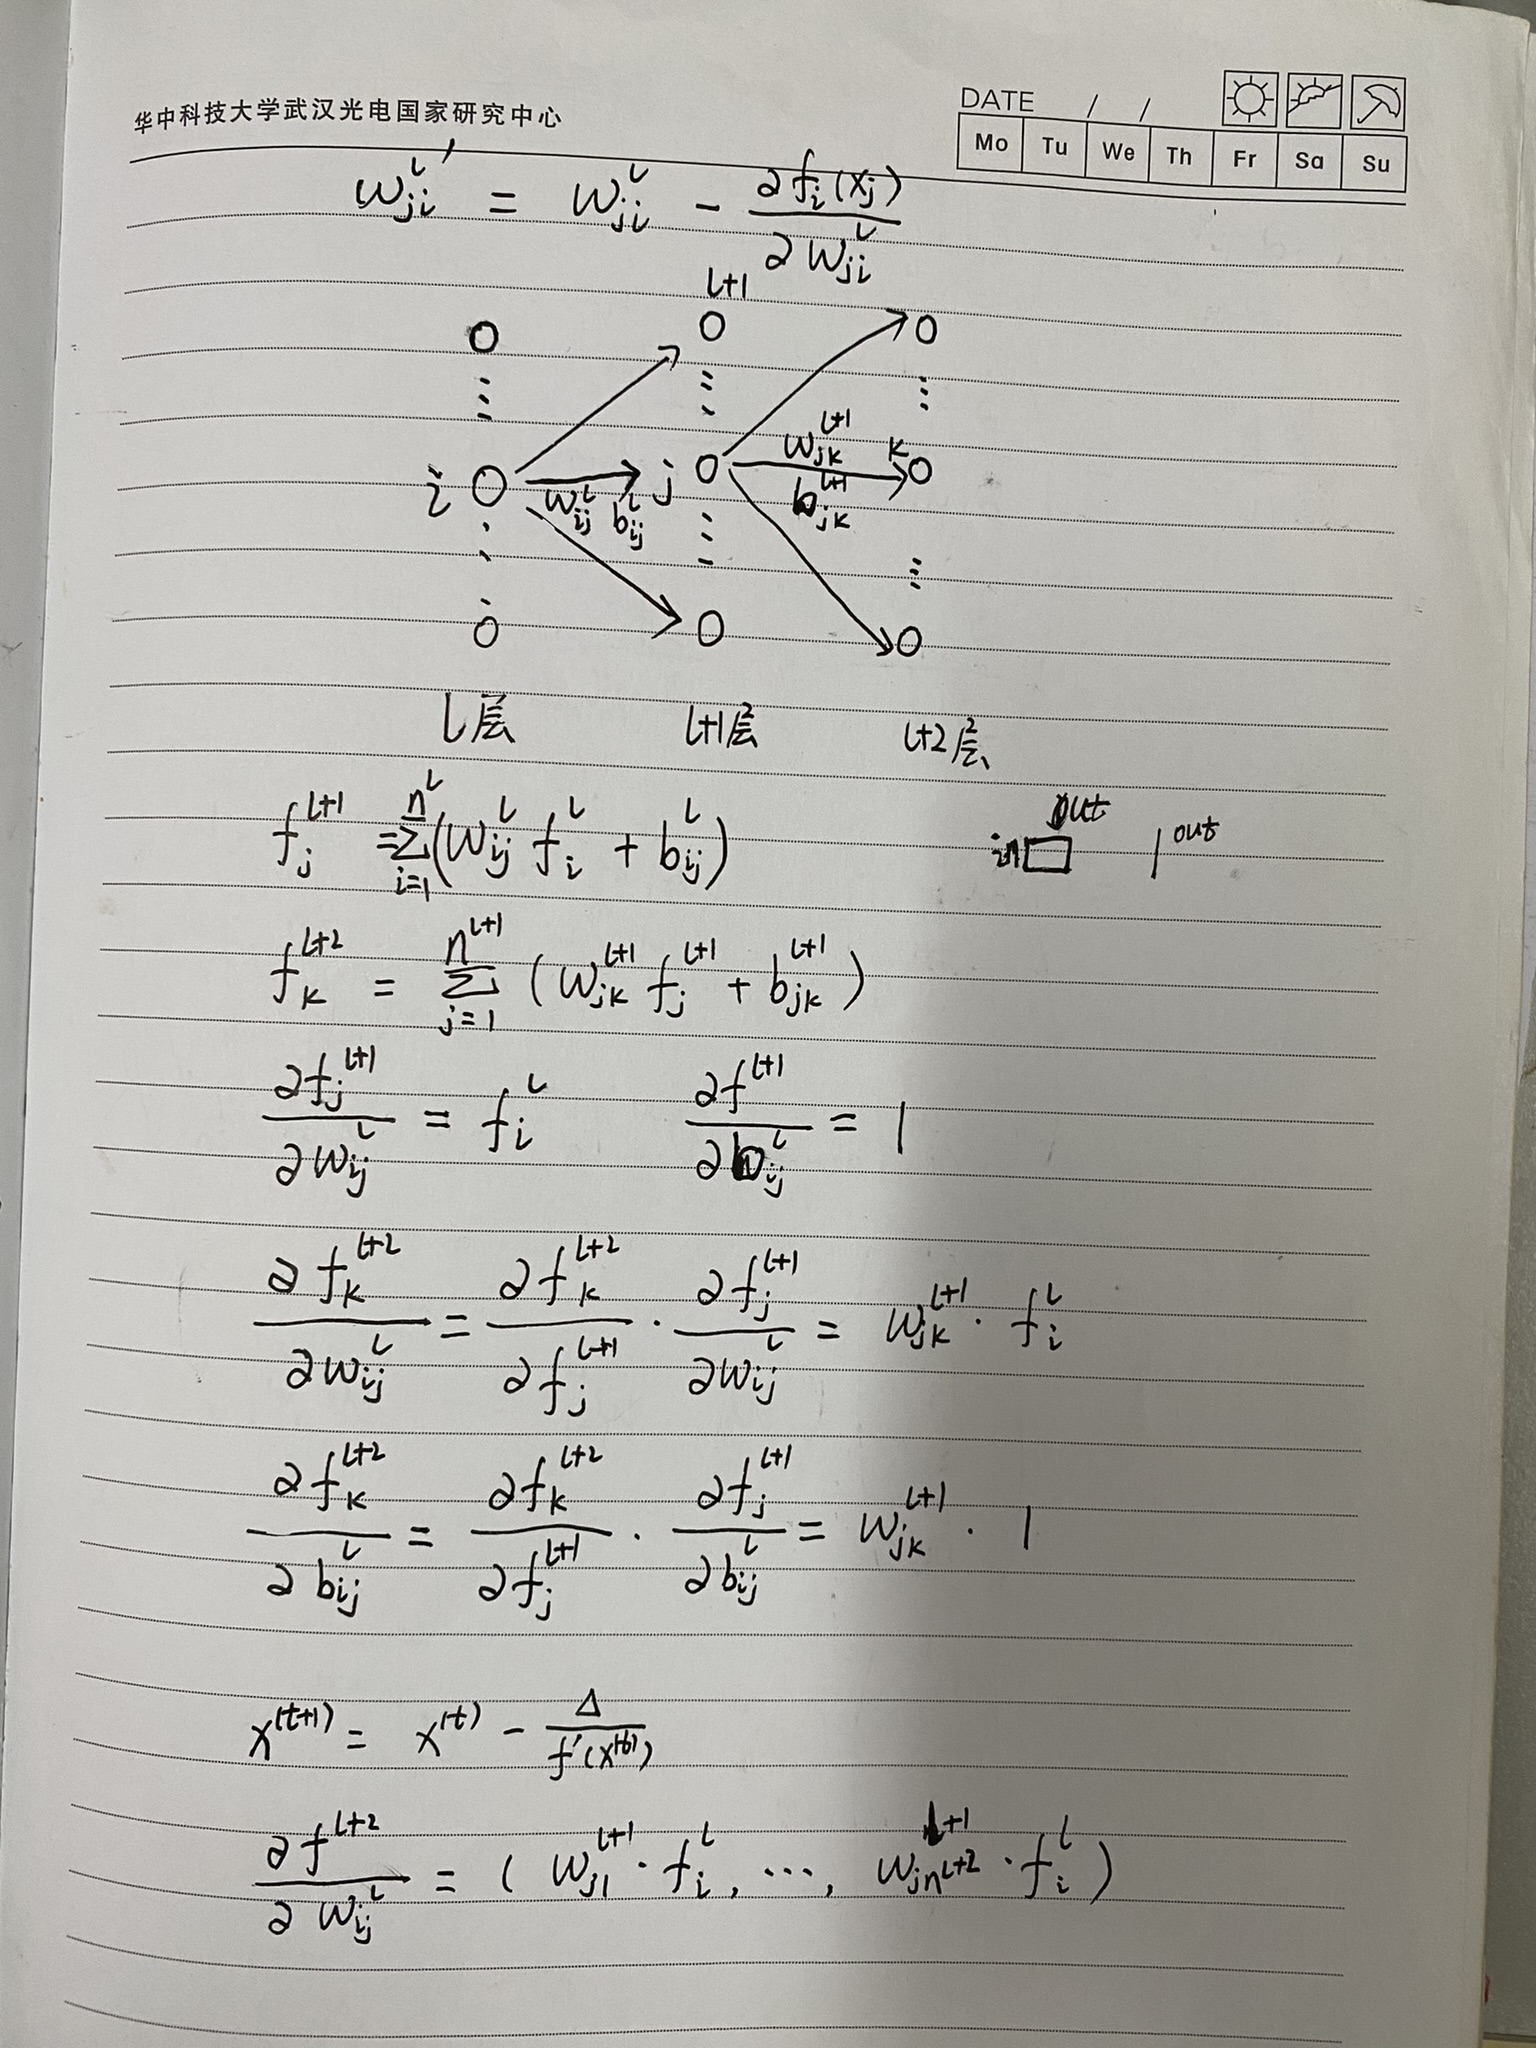 华中科技大学武汉光电国家研究中心
DATE / /
Mo Tu We Th Fr Sa Su
w_{ji}^{l}' = w_{ji}^{l} - ∂f_i(x_j) / ∂w_{ji}^{l}
l+1
w_{jk}^{l+1} k
i w_{ij}^{l} b_{ij}^{l} j b_{jk}^{l+1}
l层 l+1层 l+2层
f_j^{l+1} = Σ_{i=1}^{n^l} (w_{ij}^{l} f_i^{l} + b_{ij}^{l})
out
in out
f_k^{l+2} = Σ_{j=1}^{n^{l+1}} (w_{jk}^{l+1} f_j^{l+1} + b_{jk}^{l+1})
∂f_j^{l+1} / ∂w_{ij}^{l} = f_i^{l} ∂f^{l+1} / ∂b_{ij}^{l} = 1
∂f_k^{l+2} / ∂w_{ij}^{l} = ∂f_k^{l+2} / ∂f_j^{l+1} · ∂f_j^{l+1} / ∂w_{ij}^{l} = w_{jk}^{l+1} · f_i^{l}
∂f_k^{l+2} / ∂b_{ij}^{l} = ∂f_k^{l+2} / ∂f_j^{l+1} · ∂f_j^{l+1} / ∂b_{ij}^{l} = w_{jk}^{l+1} · 1
x^{(t+1)} = x^{(t)} - Δ / f'(x^{(t)})
∂f^{l+2} / ∂w_{ij}^{l} = (w_{j1}^{l+1} · f_i^{l}, ⋯, w_{jn^{l+2}}^{l+1} · f_i^{l})